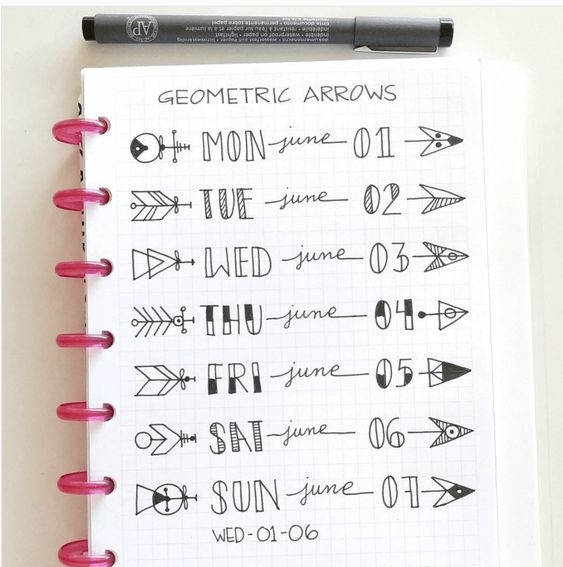 GEOMETRIC ARROWS
MON june 01
TUE june 02
WED june 03
THU june 04
FRI june 05
SAT june 06
SUN june 07
WED-01-06
AP